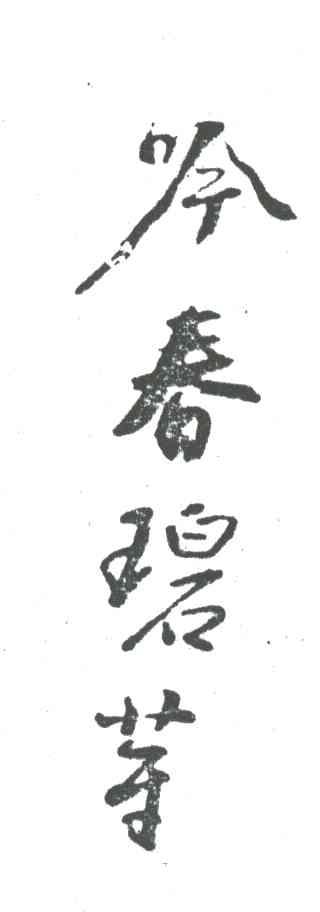 吟春碧芽